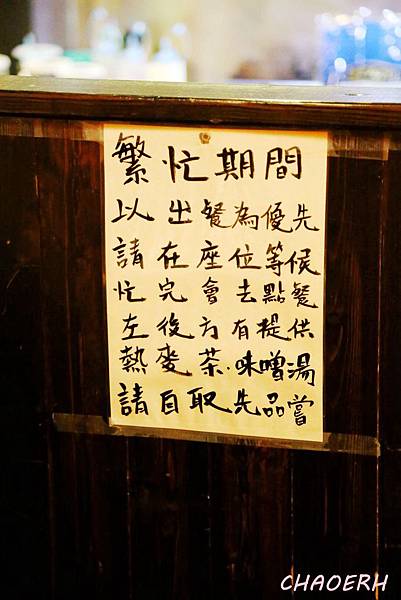 繁忙期間
以出餐為優先
請在座位等候
忙完會去點餐
左後方有提供
熱麥茶.味噌湯
請自取先品嘗
CHAOERH